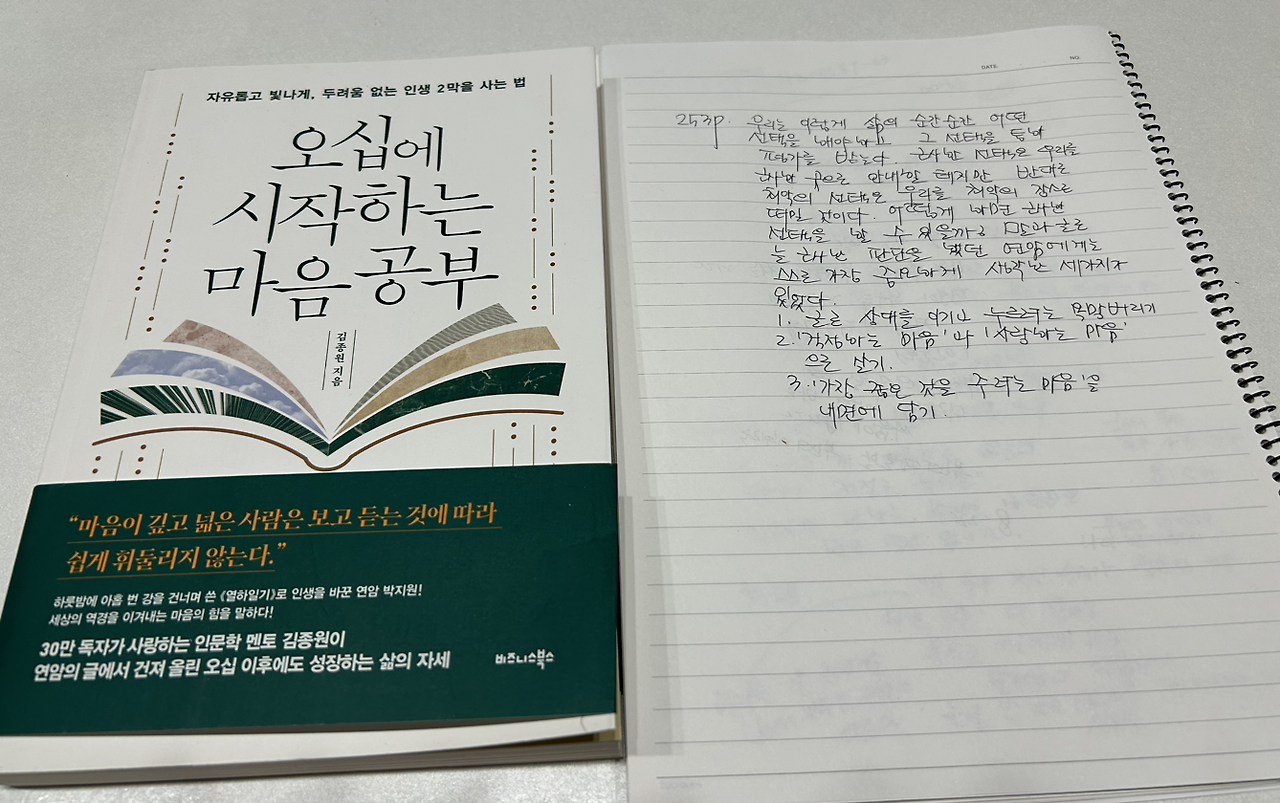 자유롭고 빛나게, 두려움 없는 인생 2막을 사는 법
오십에
시작하는
마음 공부
김종원 지음
“마음이 깊고 넓은 사람은 보고 듣는 것에 따라
쉽게 휘둘리지 않는다.”
하룻밤에 아홉 번 강을 건너며 쓴 《열하일기》로 인생을 바꾼 연암 박지원!
세상의 역경을 이겨내는 마음의 힘을 말하다!
30만 독자가 사랑하는 인문학 멘토 김종원이
연암의 글에서 건져 올린 오십 이후에도 성장하는 삶의 자세
비즈니스북스
DATE.
NO.
253p. 우리는 이렇게 삶의 순간순간 어떤
선택을 해야 하고 그 선택을
평가를 받는다. 근사한 선택은 우리를
근사한 곳으로 안내할 테지만 반대로
최악의 선택은 우리를 최악의 장소로
떠밀 것이다. 어떻게 하면 근사한
선택을 할 수 있을까? 말과 글로
늘 근사한 판단을 했던 연암에게는
스스로 가장 중요하게 생각한 세가지가
있었다.
1. 글로 상대를 이기고 누르려는 욕망버리기
2. '걱정하는 마음'과 '사랑하는 마음'
으로 살기.
3. '가장 좋은 것을 주려는 마음'을
내면에 담기.